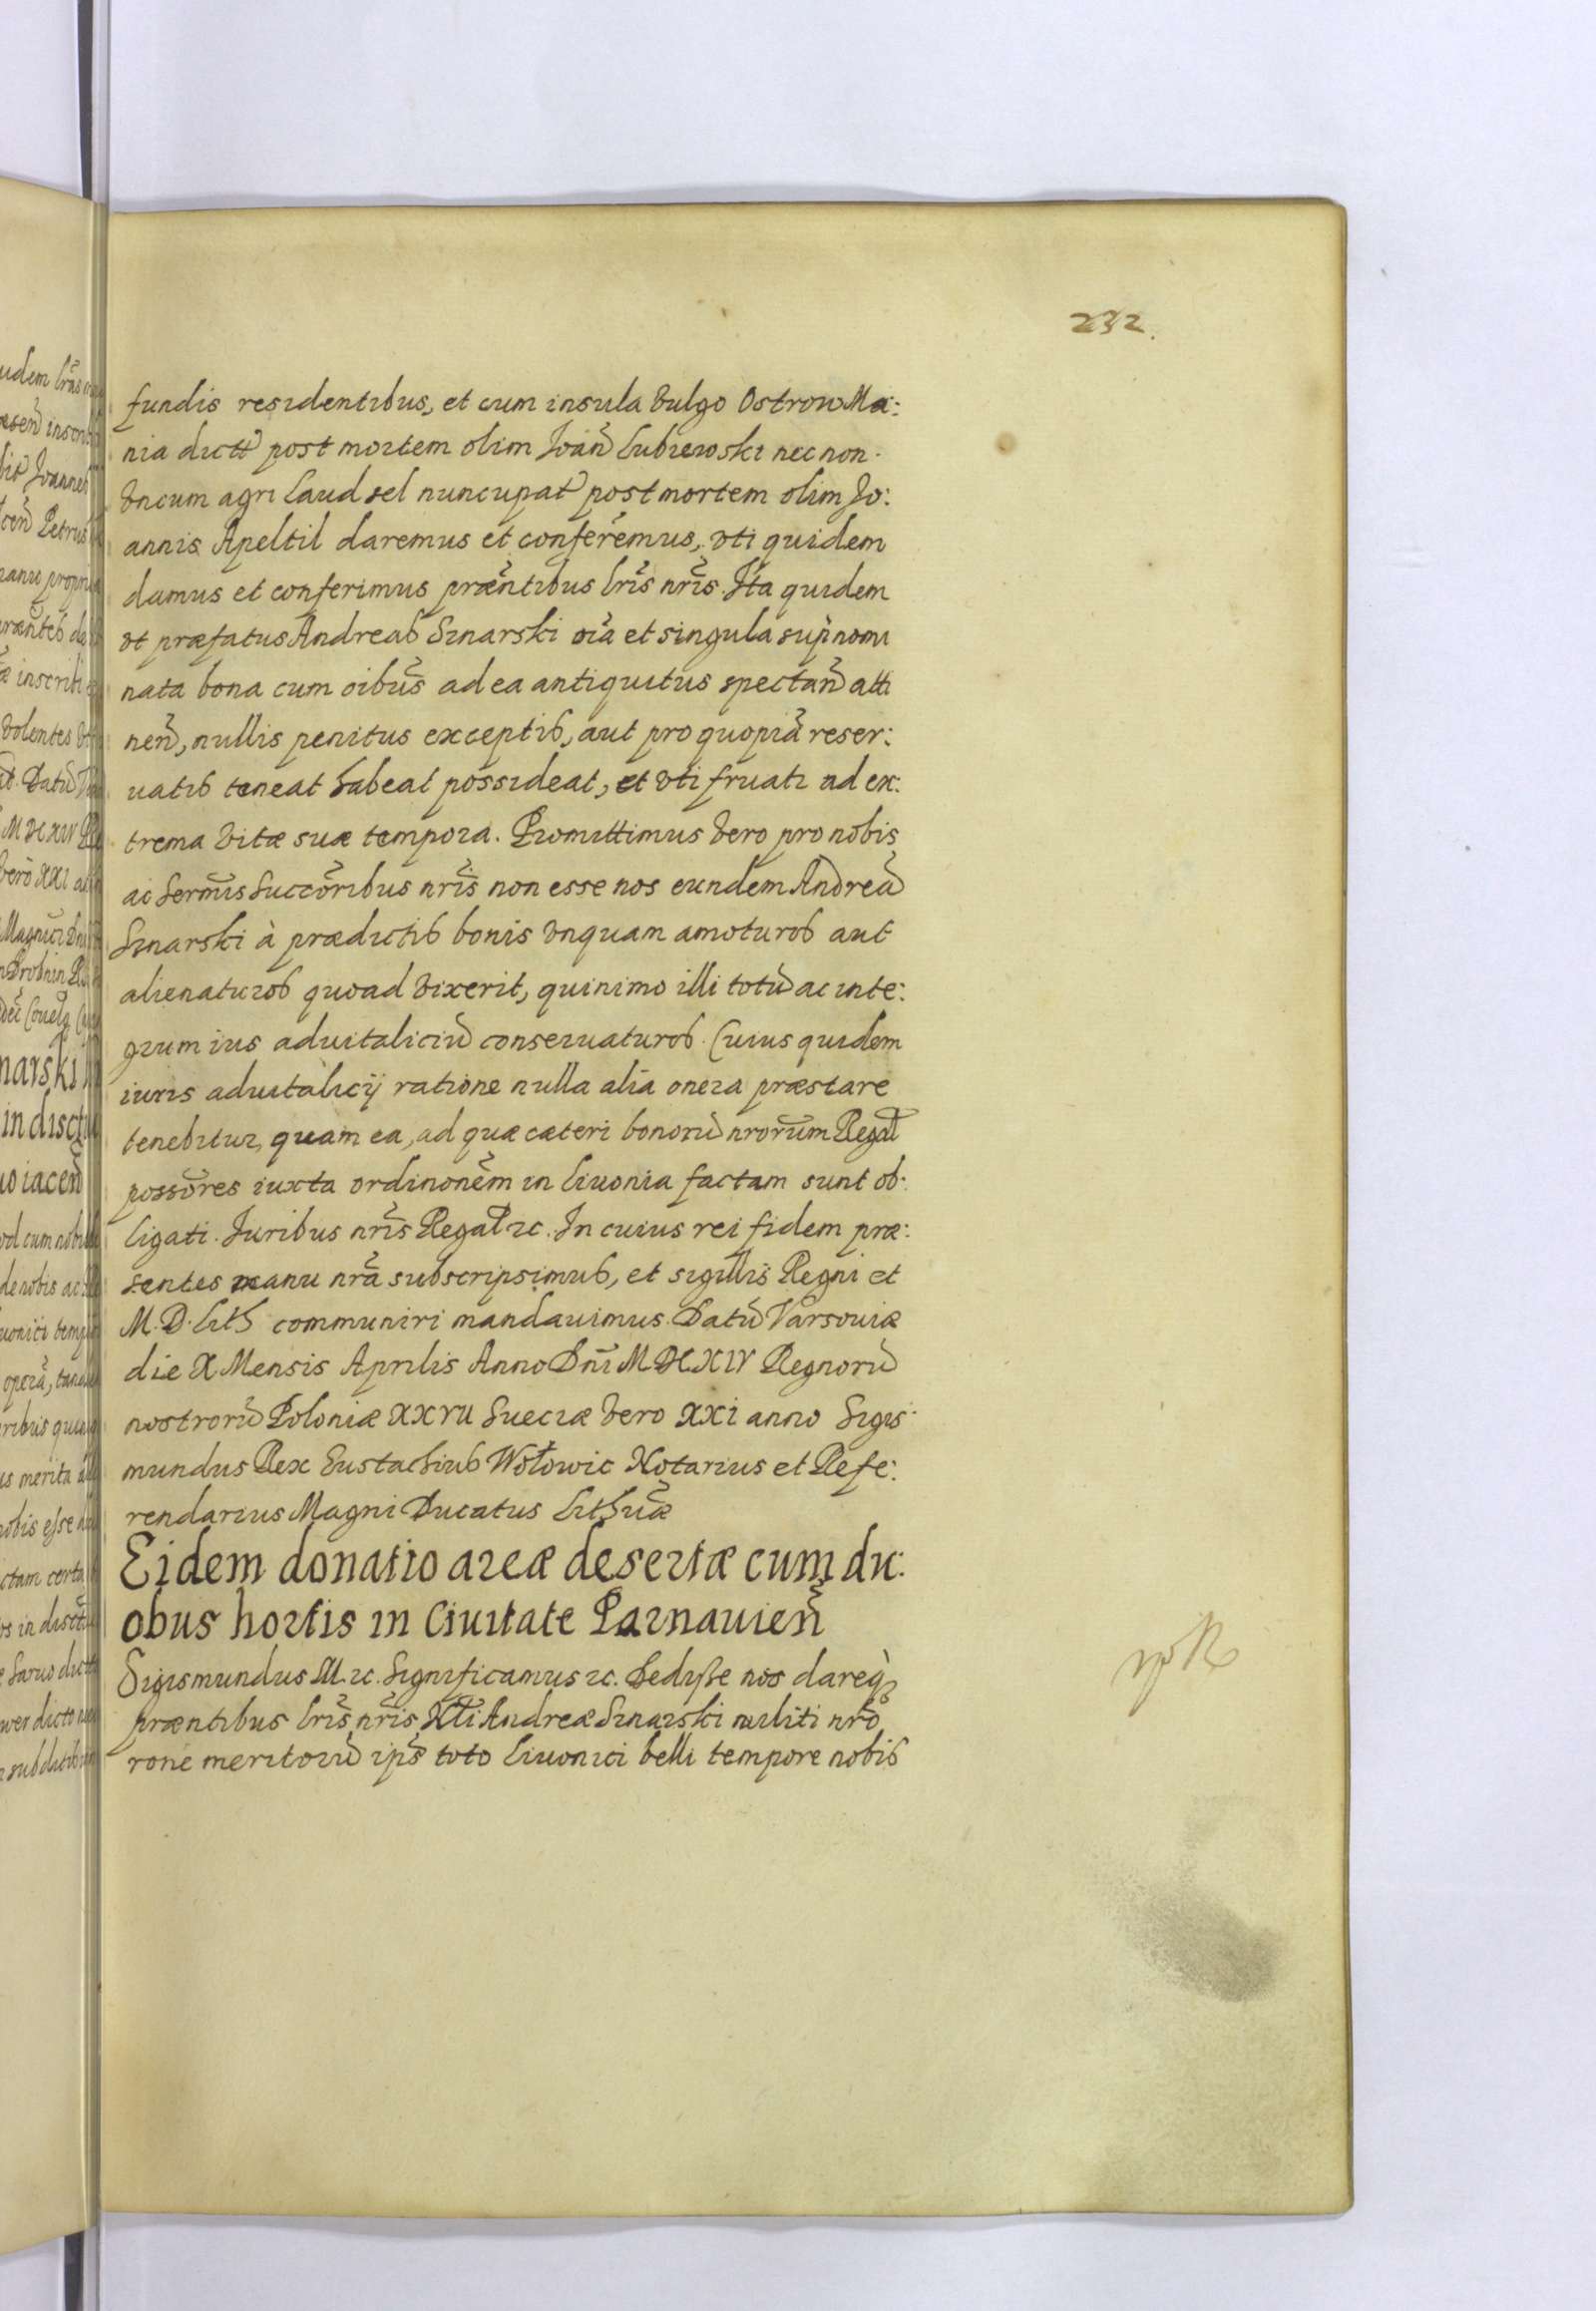 232.
fundis residentibus, et cum insula vulgo Ostrow Ma:
nia dictt post mortem olim Joañ Lubiewski nec non
vncum agri Laudsel nuncupat post mortem olim Jo:
annis Apeltil daremus et conferemus, vti quidem
damus et conferimus præñtibus lr̃is nr̃is. Ita quidem
vt præfatus Andreas Sinarski oĩa et singula sup̃nomi
nata bona cum oibũs ad ea antiquitus spectañ atti
neñ, nullis penitus exceptis, aut pro quopiã reser:
uatis teneat habeat possideat, et vti fruati ad ex:
trema vitæ suæ tempora. Promittimus vero pro nobis
ac Serm̃is Succõribus nr̃is non esse nos eundem Andreã
Sinarski à prædictis bonis vnquam amoturos aut
alienaturos quoad vixerit, quinimo illi totũ ac inte:
grum ius aduitaliciũ conseruaturos. Cuius quidem
iuris aduitalicij ratione nulla alia onera præstare
tenebitur, quam ea, ad quæ cæteri bonorũ nrorũm Regal
possõres iuxta ordinonẽm in Liuonia factam sunt ob:
ligati. Juribus nr̃is Regal ꝛc. In cuius rei fidem præ:
sentes manu nrã subscripsimus, et sigillis Regni et
M. D. Lith communiri mandauimus. Datũ Varsouiæ
die X Mensis Aprilis Anno Dñi MDCXIV Regnorũ
nostrorũ Poloniæ XXVII Sueciæ vero XXI anno Sigis:
mundus Rex Eustachius Wołowic Notarius et Refe:
rendarius Magni Ducatus Lithuæ̃
Eidem donatio areæ desertæ cum du:
obus hortis in Ciuitate Parnauieñ
Sigismundus III. ꝛc. Significamus ꝛc. Dedisse nos dareq̃
præntibus lr̃is nr̃is Andreæ Sinarski militi nrõ
rone meritorũ ips̃ toto Liuonici belli tempore nobis